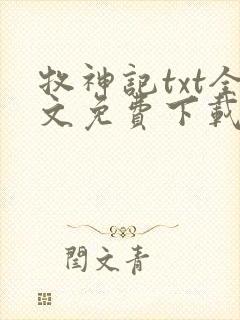 牧神記txt全
文免費下載
閆文青